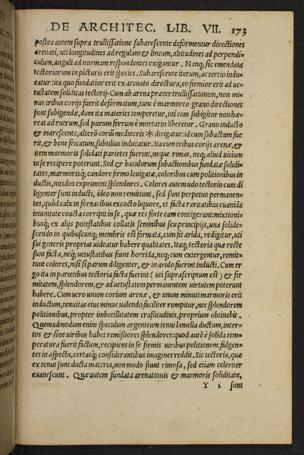 DE ARCHITEC. LIB. VII. 173
postea autem supra trullissatione subarescente deformentur directiones
arenati, uti longitudines ad regulam & lineam, altitudines ad perpendi
culum, anguli ad normam respondentes exigantur. Nanq; sic emendata
tectoriorum in picturis erit species. Subarescente iterum, ac tertio indu-
catur: ita quo fundatior erit ex arenato directura, eo firmior erit ad ue-
tustatem soliditas tectorij. Cum ab arena præter trullissationem, non mi
nus tribus corijs fuerit deformatum, tunc è marmoreo grano directiones
sunt subigendæ, dum ita materies temperetur, uti cum subigitur non hæ-
reat ad rutrum, sed purum ferrum è mortario liberetur. Grano inducto
& inarescente, alterū corium mediocre * dirigatur: id cum subactum fue
rit, & bene fricatum, subtilius inducatur. Ita cum tribus corijs arenæ, &
item marmoris solidati parietes fuerint, neque rimas, neq; aliud uitium
in se recipere poterunt. Sed & baculorum subactionibus fundatæ solidi-
tates, marmorisq; candore firmo leuigatæ, coloribus cum politionibus in
ductis, nitidos expriment splendores. Colores autem udo tectorio cum di
ligenter sunt inducti, ideo non remittunt, sed sunt perpetuo permanen-
tes, quòd calx in fornacibus excocto liquore, et facta raritatibus euanida
ieiunitate coacta corripit in se, quæ res fortè eam contigerunt: mixtioni-
busq; ex alijs potestatibus collatis seminibus seu principijs, una solide-
scendo in quibuscunq; membris est formata, cum fit arida, redigitur, uti
sui generis proprias uideatur habere qualitates. Itaq; tectoria que recte
sunt facta, neq; uetustatibus fiunt horrida, neq; cum extergentur, remit-
tunt colores, nisi si parum diligenter, & in arido fuerint inducti. Cum er
go ita in parietibus tectoria facta fuerint (uti suprascriptum est) & fir
mitatem, & splendorem, & ad uetustatem permanentem uirtutem poterunt
habere. Cum uero unum corium arenæ, & unum minuti marmoris erit
inductum, tenuitas eius minus ualendo faciliter rumpitur, nec splendorem
politionibus, propter imbecillitatem crassitudinis, proprium obtinebit.
Quemadmodum enim speculum argenteum tenui lamella ductum, incer-
tos & sine uiribus habet remissiores splendores: quod autē è solida tem-
peratura fuerit fictum, recipiens in se firmis uiribus politionem, fulgen-
tes in aspectu, certasq; considerantibus imagines reddit. Sic tectoria, quæ
ex tenui sunt ducta materia, non modo fiunt rimosa, sed etiam celeriter
euanescunt. Quæ autem fundata arenationis & marmoris soliditate,
Y 2 sunt